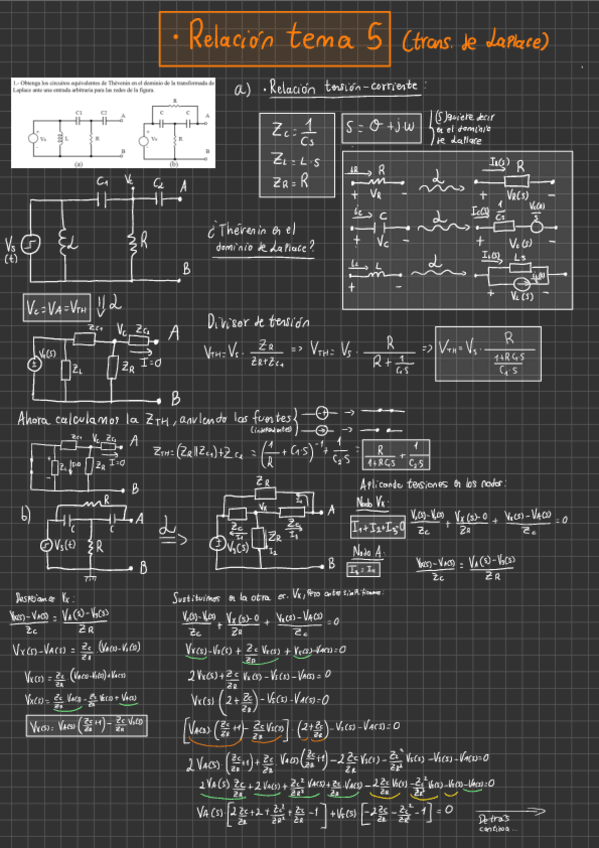 · Relación tema 5 (trans. de Laplace)
1.- Obtenga los circuitos equivalentes de Thévenin en el dominio de la transformada de
Laplace ante una entrada arbitraria para las redes de la figura.
C1 C2 A
Vs L R B
(a)
R
C C A
Vs R B
(b)
a) · Relación tensión-corriente:
Zc = 1/Cs
ZL = L·s
ZR = R
s = σ + jω
(s) quiere decir
en el dominio
de Laplace
¿Thévenin en el
dominio de Laplace?
C1 Vc C2 A
Vs(t) L R
B
Vc = VA = VTH
Divisor de tensión
VTH = Vs · ZR/(ZR+Zc1) => VTH = Vs · R/(R + 1/C1s) => VTH = Vs · R/((1+RC1s)/(C1·s))
Ahora calculamos la ZTH, anulando las fuentes
(independientes)
ZTH = (ZR||Zc1) + Zc2 = (1/R + C1·s)^-1 + 1/(C2·s) = R/(1+RC1s) + 1/(C2·s)
b)
Vs(t) R A B
Aplicando tensiones en los nodos:
Nodo Vx:
I1+I2+I3=0
(Vx(s)-Vs(s))/Zc + (Vx(s)-0)/ZR + (Vx(s)-VA(s))/Zc = 0
Nodo A:
I3 = I4
(Vx(s)-VA(s))/Zc = (VA(s)-Vs(s))/ZR
Despejamos Vx:
(Vx(s)-VA(s))/Zc = (VA(s)-Vs(s))/ZR
Vx(s)-VA(s) = Zc/ZR (VA(s)-Vs(s))
Vx(s) = Zc/ZR (VA(s)-Vs(s)) + VA(s)
Vx(s) = Zc/ZR VA(s) - Zc/ZR Vs(s) + VA(s)
Vx(s) = VA(s) (Zc/ZR + 1) - Zc/ZR Vs(s)
Sustituimos en la otra ec. Vx, pero antes simplificamos:
(Vx(s)-Vs(s))/Zc + (Vx(s)-0)/ZR + (Vx(s)-VA(s))/Zc = 0
Vx(s) - Vs(s) + Zc/ZR Vx(s) + Vx(s) - VA(s) = 0
2Vx(s) + Zc/ZR Vx(s) - Vs(s) - VA(s) = 0
Vx(s) (2 + Zc/ZR) - Vs(s) - VA(s) = 0
[VA(s) (Zc/ZR + 1) - Zc/ZR Vs(s)] · (2 + Zc/ZR) - Vs(s) - VA(s) = 0
2VA(s) (Zc/ZR + 1) + Zc/ZR VA(s) (Zc/ZR + 1) - 2 Zc/ZR Vs(s) - Zc²/ZR² Vs(s) - Vs(s) - VA(s) = 0
2VA(s) Zc/ZR + 2VA(s) + Zc²/ZR² VA(s) + Zc/ZR VA(s) - 2Zc/ZR Vs(s) - Zc²/ZR² Vs(s) - Vs(s) - VA(s) = 0
VA(s) [2Zc/ZR + 2 + Zc²/ZR² + Zc/ZR - 1] + Vs(s) [-2Zc/ZR - Zc²/ZR² - 1] = 0
Detrás
continua...